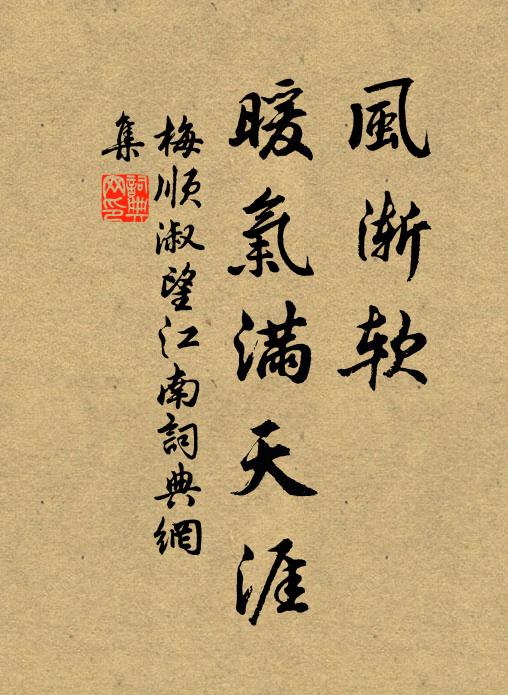 風漸软
暖氣滿天涯
梅順淑望江南詞典網
集
詞典网印